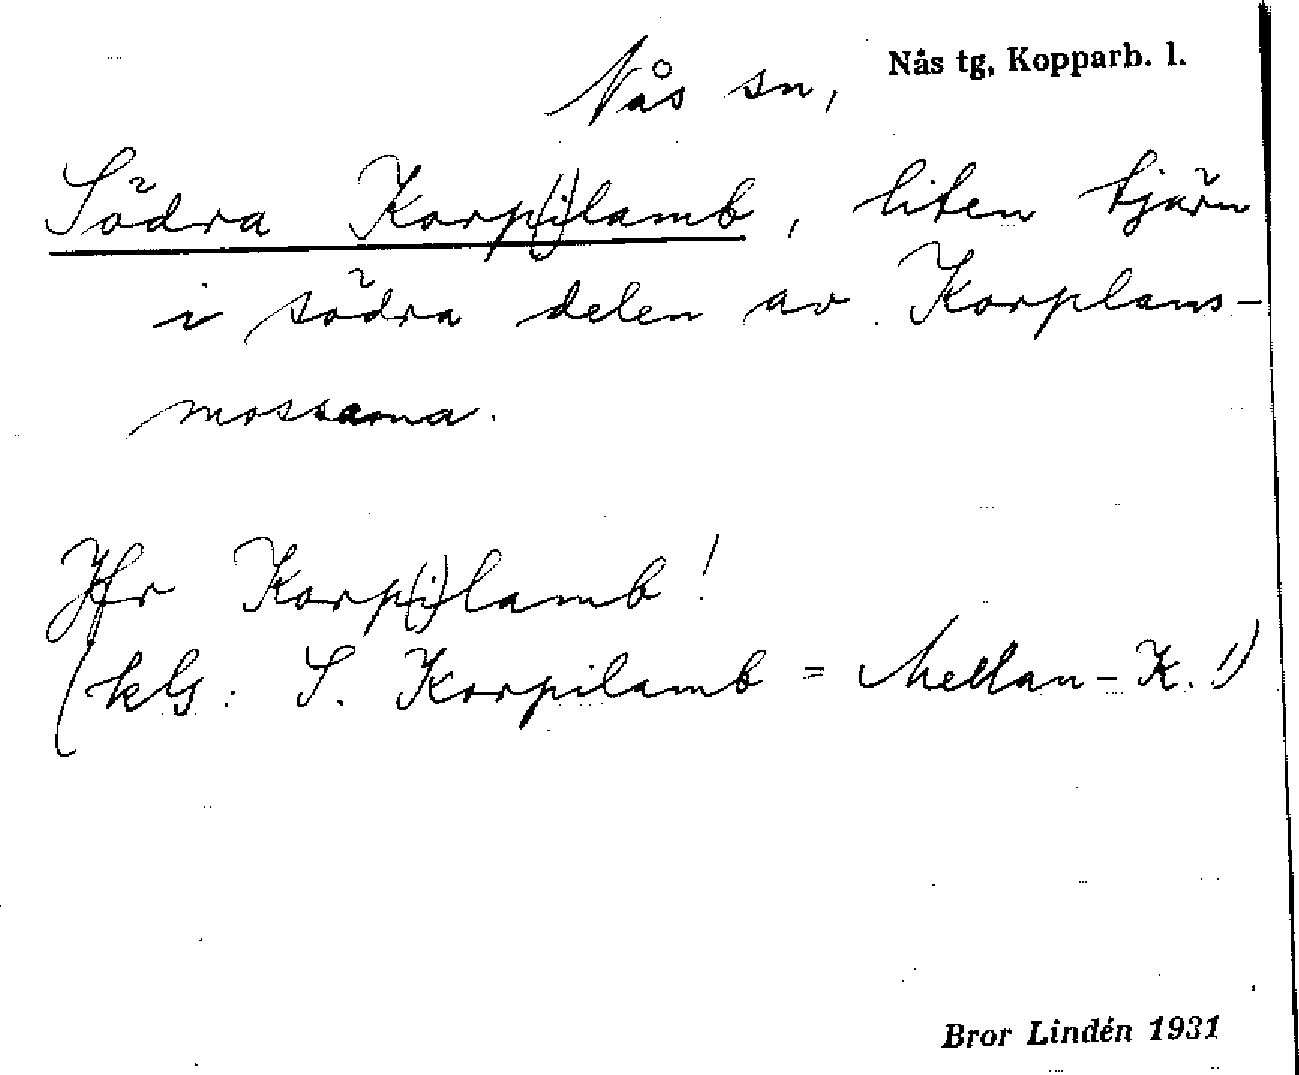 Nås sn, Nås tg, Kopparb. l.
Södra Korp(i)lamb, liten tjärn
i södra delen av Korplams-
mossarna.
Jfr Korp(i)lamb!
(kls: S. Korpilamb = Mellan-K.!)
Bror Lindén 1931